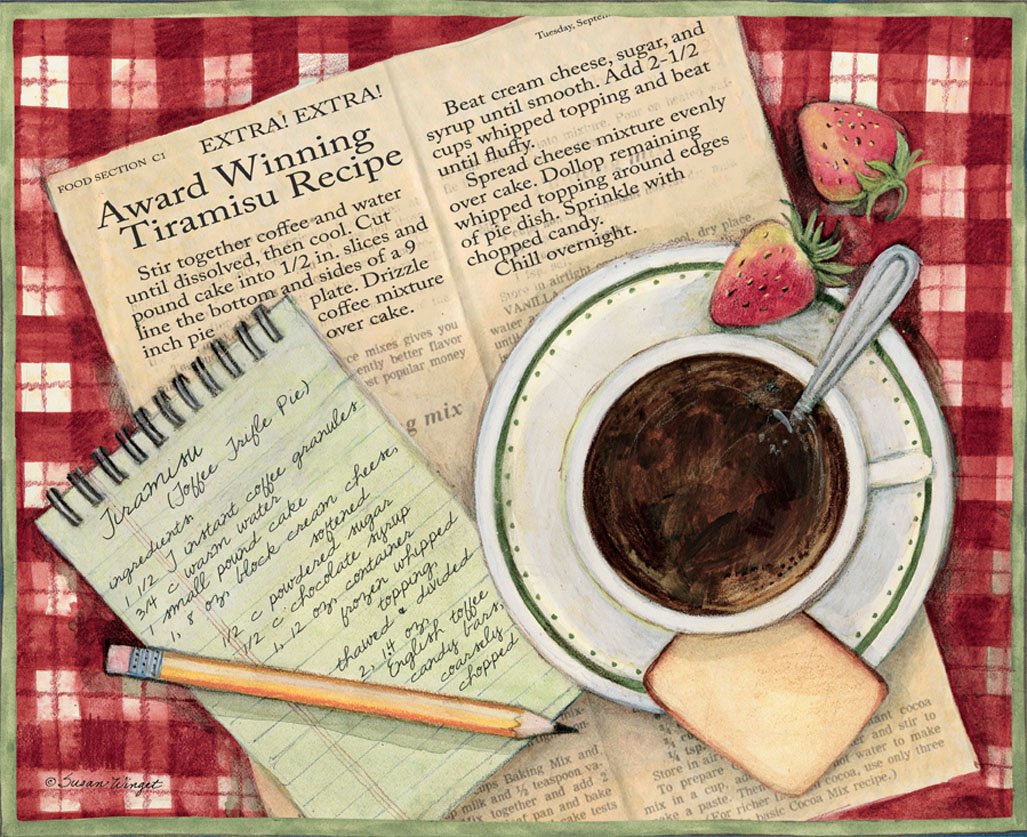 Tuesday, Septem
FOOD SECTION C1
EXTRA! EXTRA!
Award Winning
Tiramisu Recipe
Stir together coffee and water
until dissolved, then cool. Cut
pound cake into 1/2 in. slices and
line the bottom and sides of a 9
inch pie plate. Drizzle
coffee mixture
over cake.
Beat cream cheese, sugar, and
syrup until smooth. Add 2-1/2
cups whipped topping and beat
until fluffy.
Spread cheese mixture evenly
over cake. Dollop remaining
whipped topping around edges
of pie dish. Sprinkle with
chopped candy.
Chill overnight.
cool, dry place.
Store in airtight
VANILLA
water
until
ce mixes gives you
ently better flavor
st popular money
g mix
Tiramisu
(Toffee Trifle Pie)
ingredients:
1 1/2 T instant coffee granules
3/4 c warm water
1 small pound cake
1, 8 oz. block cream cheese,
softened
1/2 c powdered sugar
1/2 c chocolate syrup
1, 12 oz. container
frozen whipped
topping,
thawed & divided
2, 14 oz.
English toffee
candy bars,
coarsely
chopped
Baking Mix and
cups milk and 1/3 teaspoon va-
together and add 2
pan and bake
cake tests
1/4 tsp.
Store in air
To prepare
mix in a cup,
a paste. Then
(For richer
basic Cocoa Mix recipe.)
ant cocoa
and stir to
water to make
cocoa, use only three
© Susan Winget